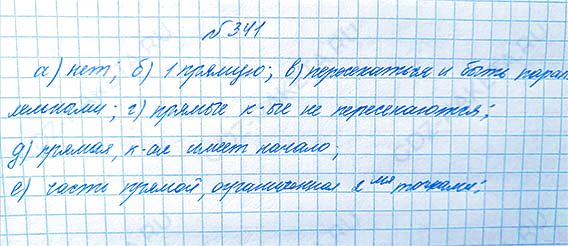 №341
а) нет; б) 1 прямую; в) пересекаться и быть парал
лельными; г) прямые к-ые не пересекаются;
д) прямая, к-ая имеет начало;
е) часть прямой, ограниченная 2мя точками;